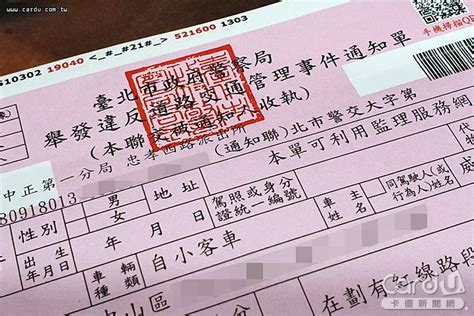 www.cardu.com.tw
510302 19040 <_#_#21#_> 521600 1303
手機掃描QR
臺北市政府警察局
舉發違反道路交通管理事件通知單
(本聯交被通知人收執)
忠孝西路派出所
(通知聯)北市警交大字第
中正第一分局
本單可利用監理服務網
80918013
性別
男
女
地址
駕照或身分
證統一編號
同駕駛人(或
行為人)姓名
出生
年月
年 月 日
車主
姓名
車輛
種類
自小客車
年 月 日
中山區
在劃有紅線路段
cardu
卡優新聞網